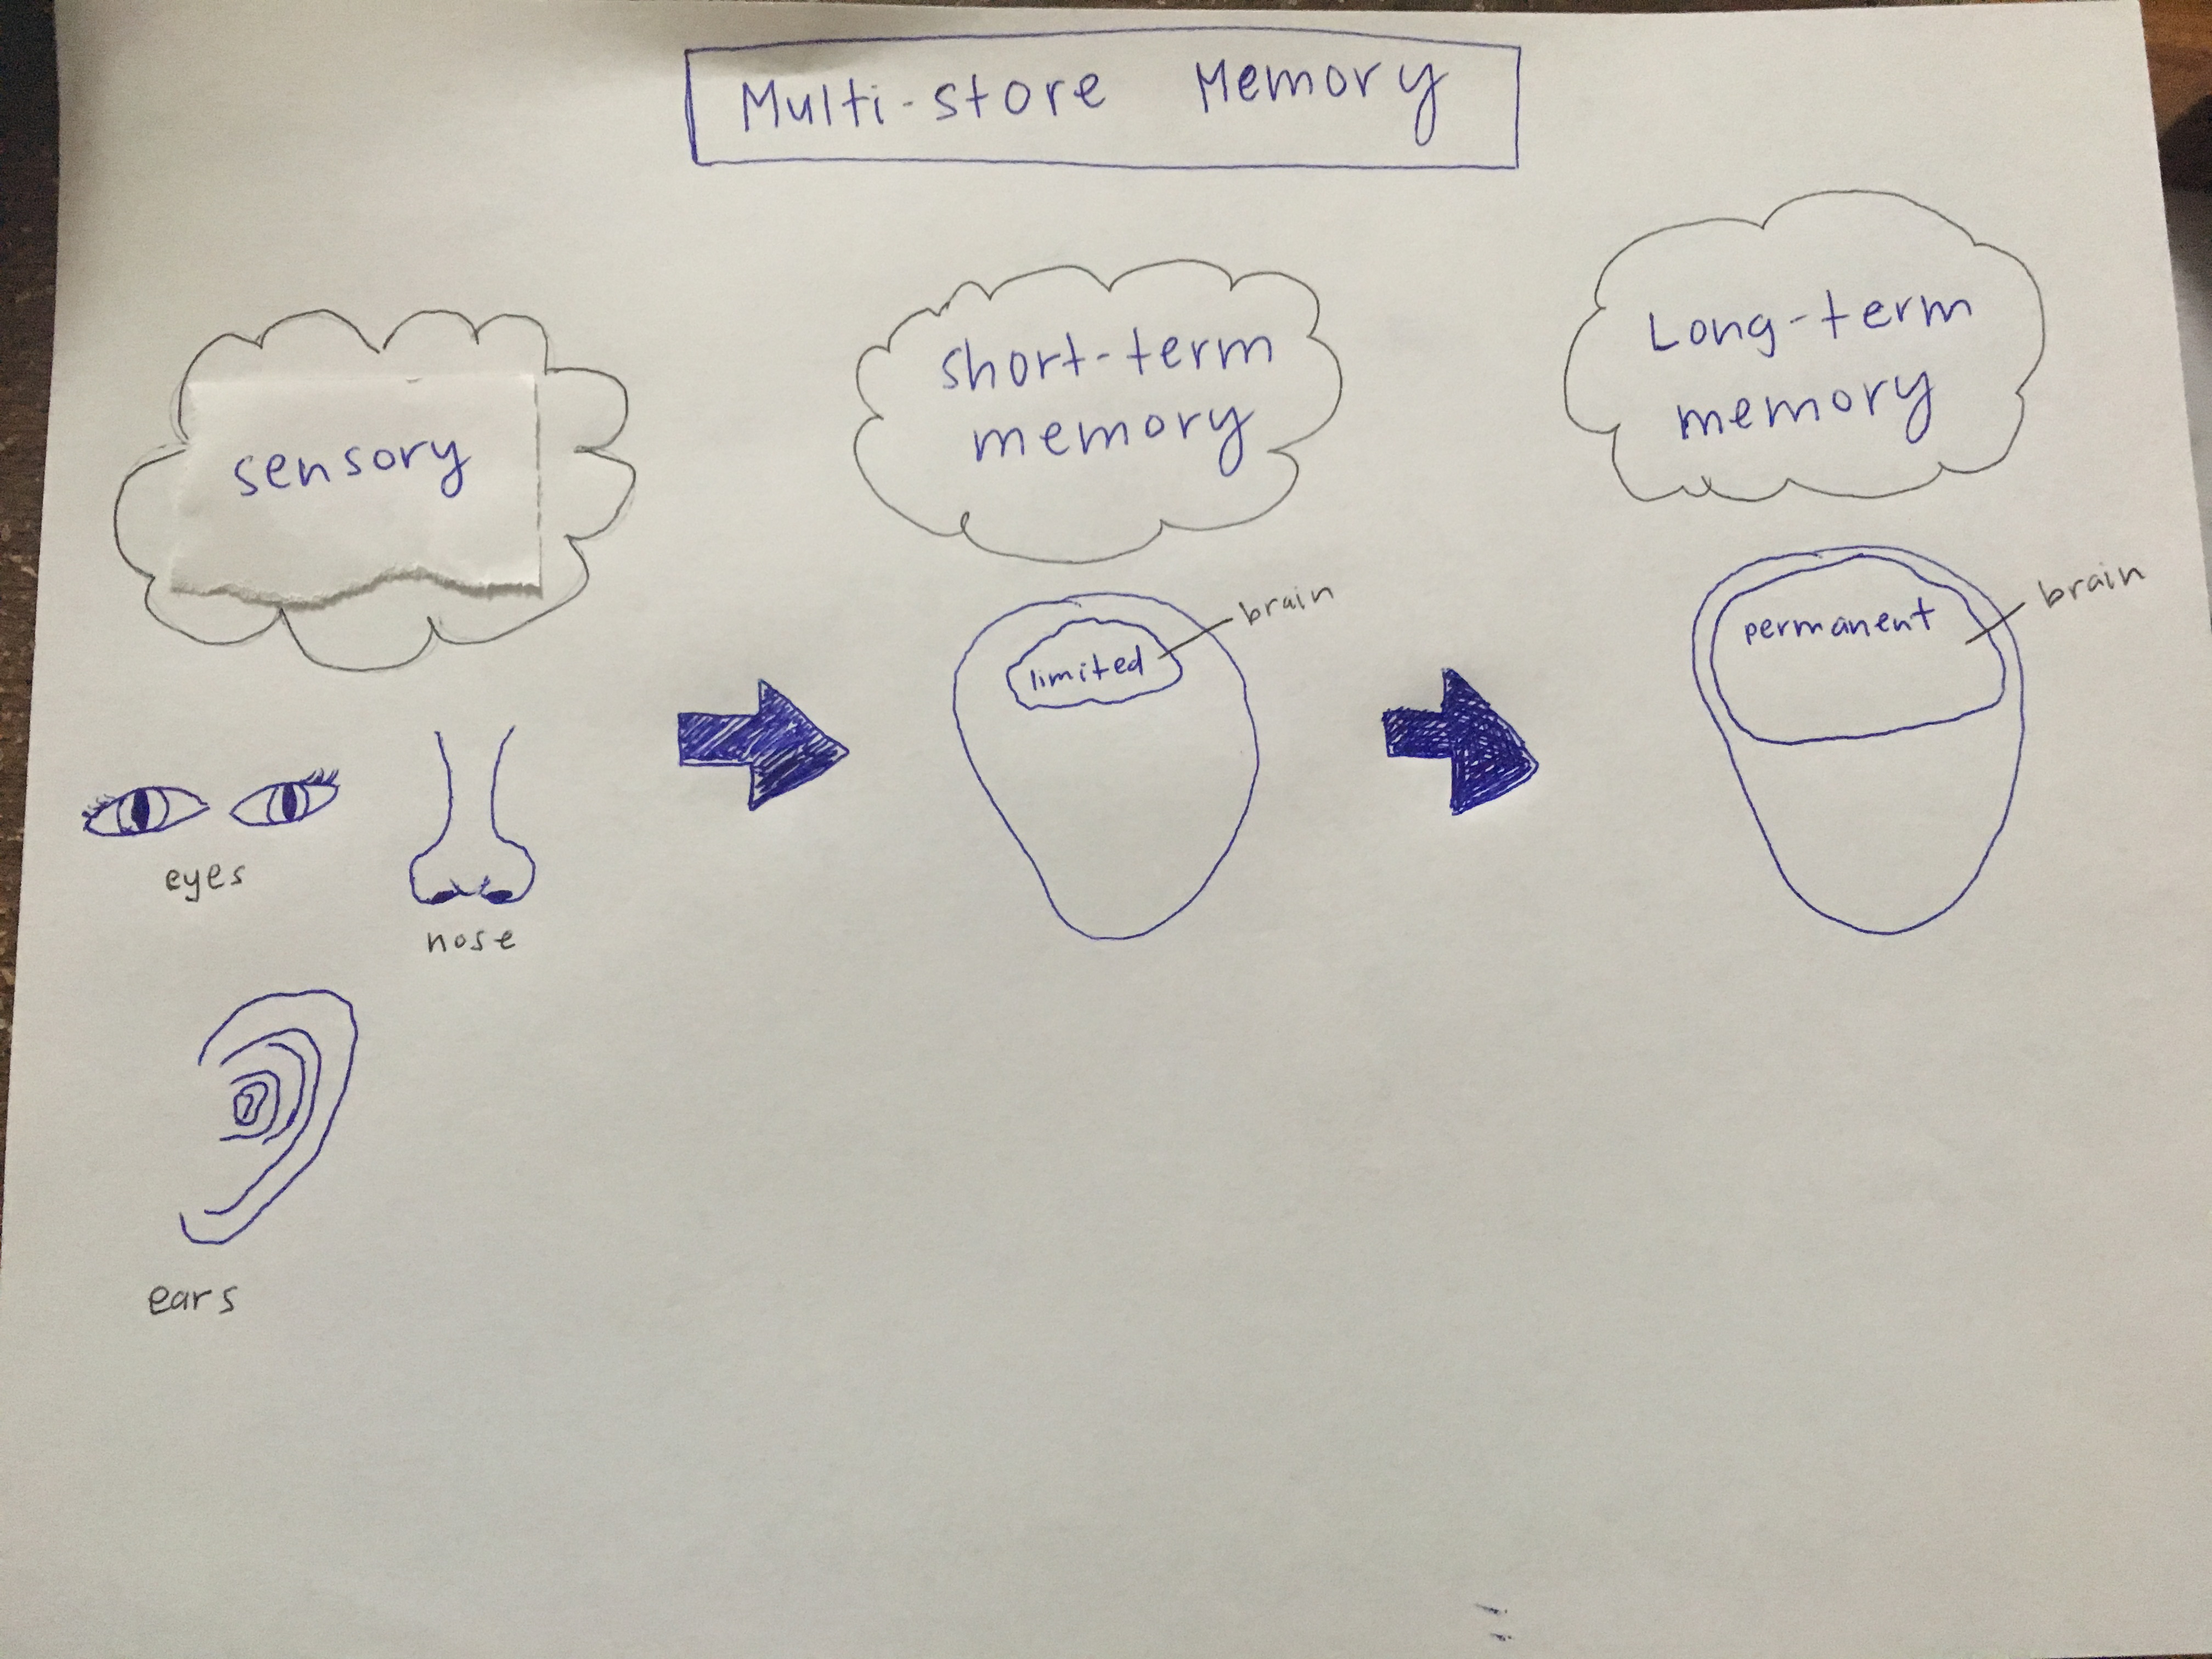 Multi-store Memory
sensory
eyes
nose
ears
short-term
memory
limited
brain
Long-term
memory
permanent
brain